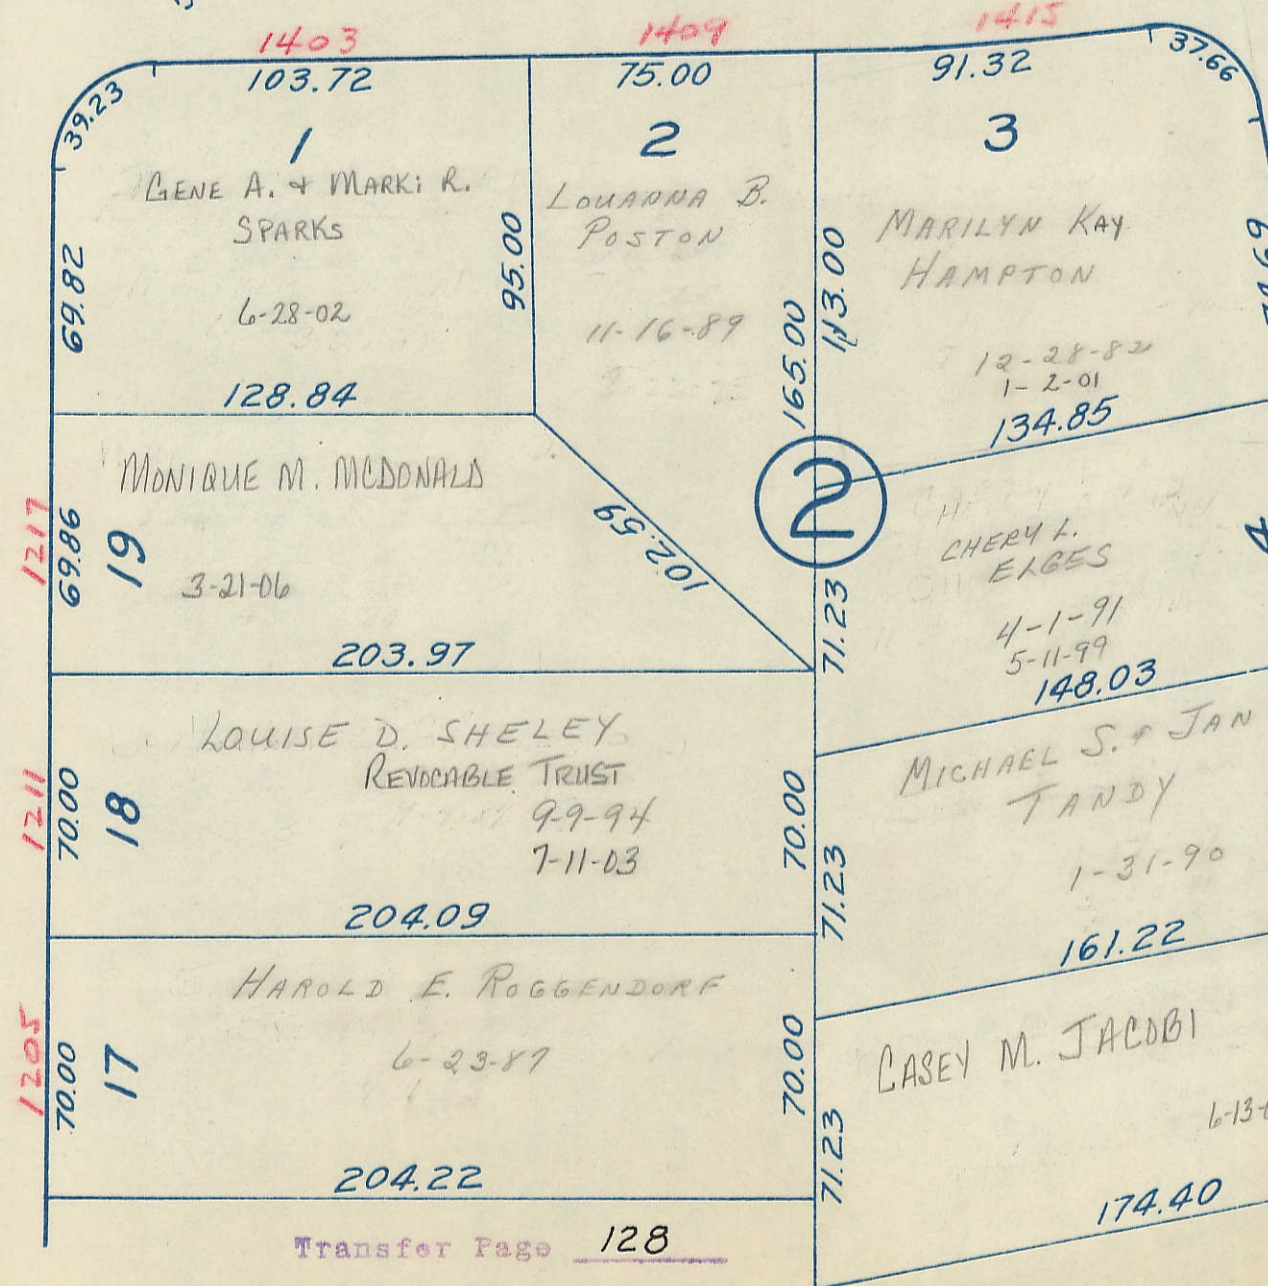 1403
1409
1415
39.23
103.72
75.00
91.32
37.66
1
2
3
GENE A. & MARKI R.
SPARKS
6-28-02
69.82
95.00
128.84
LOUANNA B.
POSTON
11-16-89
165.00
MARILYN KAY
HAMPTON
113.00
12-28-82
1-2-01
134.85
2
MONIQUE M. MCDONALD
1217
69.86
19
3-21-06
102.59
203.97
CHERY L.
ELGES
4-1-91
5-11-99
4
71.23
148.03
LOUISE D. SHELEY
REVOCABLE TRUST
9-9-94
7-11-03
1211
70.00
18
70.00
204.09
MICHAEL S. & JAN
TANDY
1-31-90
71.23
161.22
HAROLD E. ROGGENDORF
6-23-87
1205
70.00
17
70.00
204.22
CASEY M. JACOBI
6-13-
71.23
174.40
Transfer Page 128